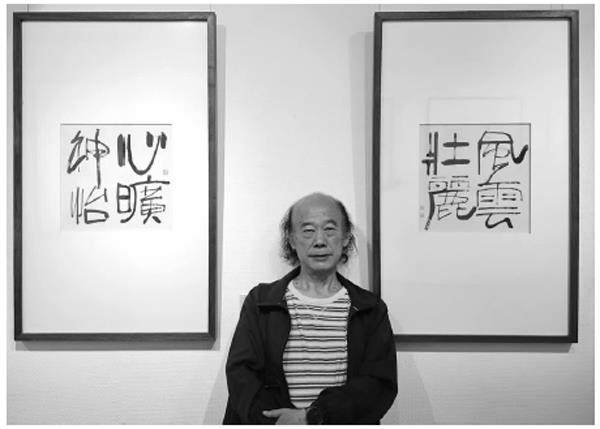 心曠
神怡
風雲
壯麗